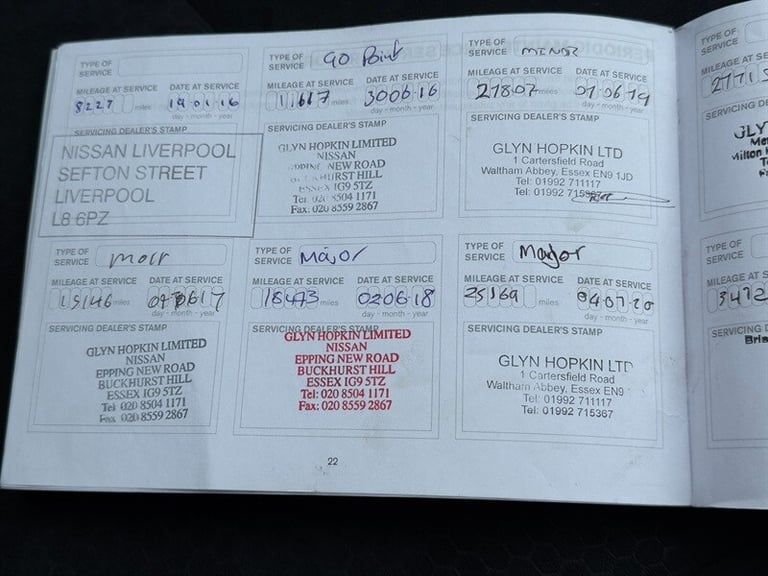 TYPE OF SERVICE
MILEAGE AT SERVICE DATE AT SERVICE
8227 miles 19 01 16
day - month - year
SERVICING DEALER'S STAMP
NISSAN LIVERPOOL
SEFTON STREET
LIVERPOOL
L8 6PZ
TYPE OF SERVICE GO Point
MILEAGE AT SERVICE DATE AT SERVICE
11617 miles 30 06 16
day - month - year
SERVICING DEALER'S STAMP
GLYN HOPKIN LIMITED
NISSAN
EPPING NEW ROAD
BUCKHURST HILL
ESSEX IG9 5TZ
Tel: 020 8504 1171
Fax: 020 8559 2867
TYPE OF SERVICE MINOR
MILEAGE AT SERVICE DATE AT SERVICE
21807 miles 07 06 19
day - month - year
SERVICING DEALER'S STAMP
GLYN HOPKIN LTD
1 Cartersfield Road
Waltham Abbey, Essex EN9 1JD
Tel: 01992 711117
Tel: 01992
TYPE OF SERVICE
MILEAGE AT SERVICE DATE AT SERVICE
15146 miles 17
day - month - year
SERVICING DEALER'S STAMP
GLYN HOPKIN LIMITED
NISSAN
EPPING NEW ROAD
BUCKHURST HILL
ESSEX IG9 5TZ
Tel: 020 8504 1171
Fax: 020 8559 2867
TYPE OF SERVICE Major
MILEAGE AT SERVICE DATE AT SERVICE
18473 miles 02 06 18
day - month - year
SERVICING DEALER'S STAMP
GLYN HOPKIN LIMITED
NISSAN
EPPING NEW ROAD
BUCKHURST HILL
ESSEX IG9 5TZ
Tel: 020 8504 1171
Fax: 020 8559 2867
TYPE OF SERVICE Major
MILEAGE AT SERVICE DATE AT SERVICE
25169 miles 04 07 20
day - month - year
SERVICING DEALER'S STAMP
GLYN HOPKIN LTD
1 Cartersfield Road
Waltham Abbey, Essex EN9
Tel: 01992 711117
Tel: 01992 715367
22
TYPE OF SERVICE
MILEAGE AT S
2771
SERVICING D
GLY
Milton
TYPE OF SERVICE
MILEAGE AT S
3412
SERVICING D
Bris